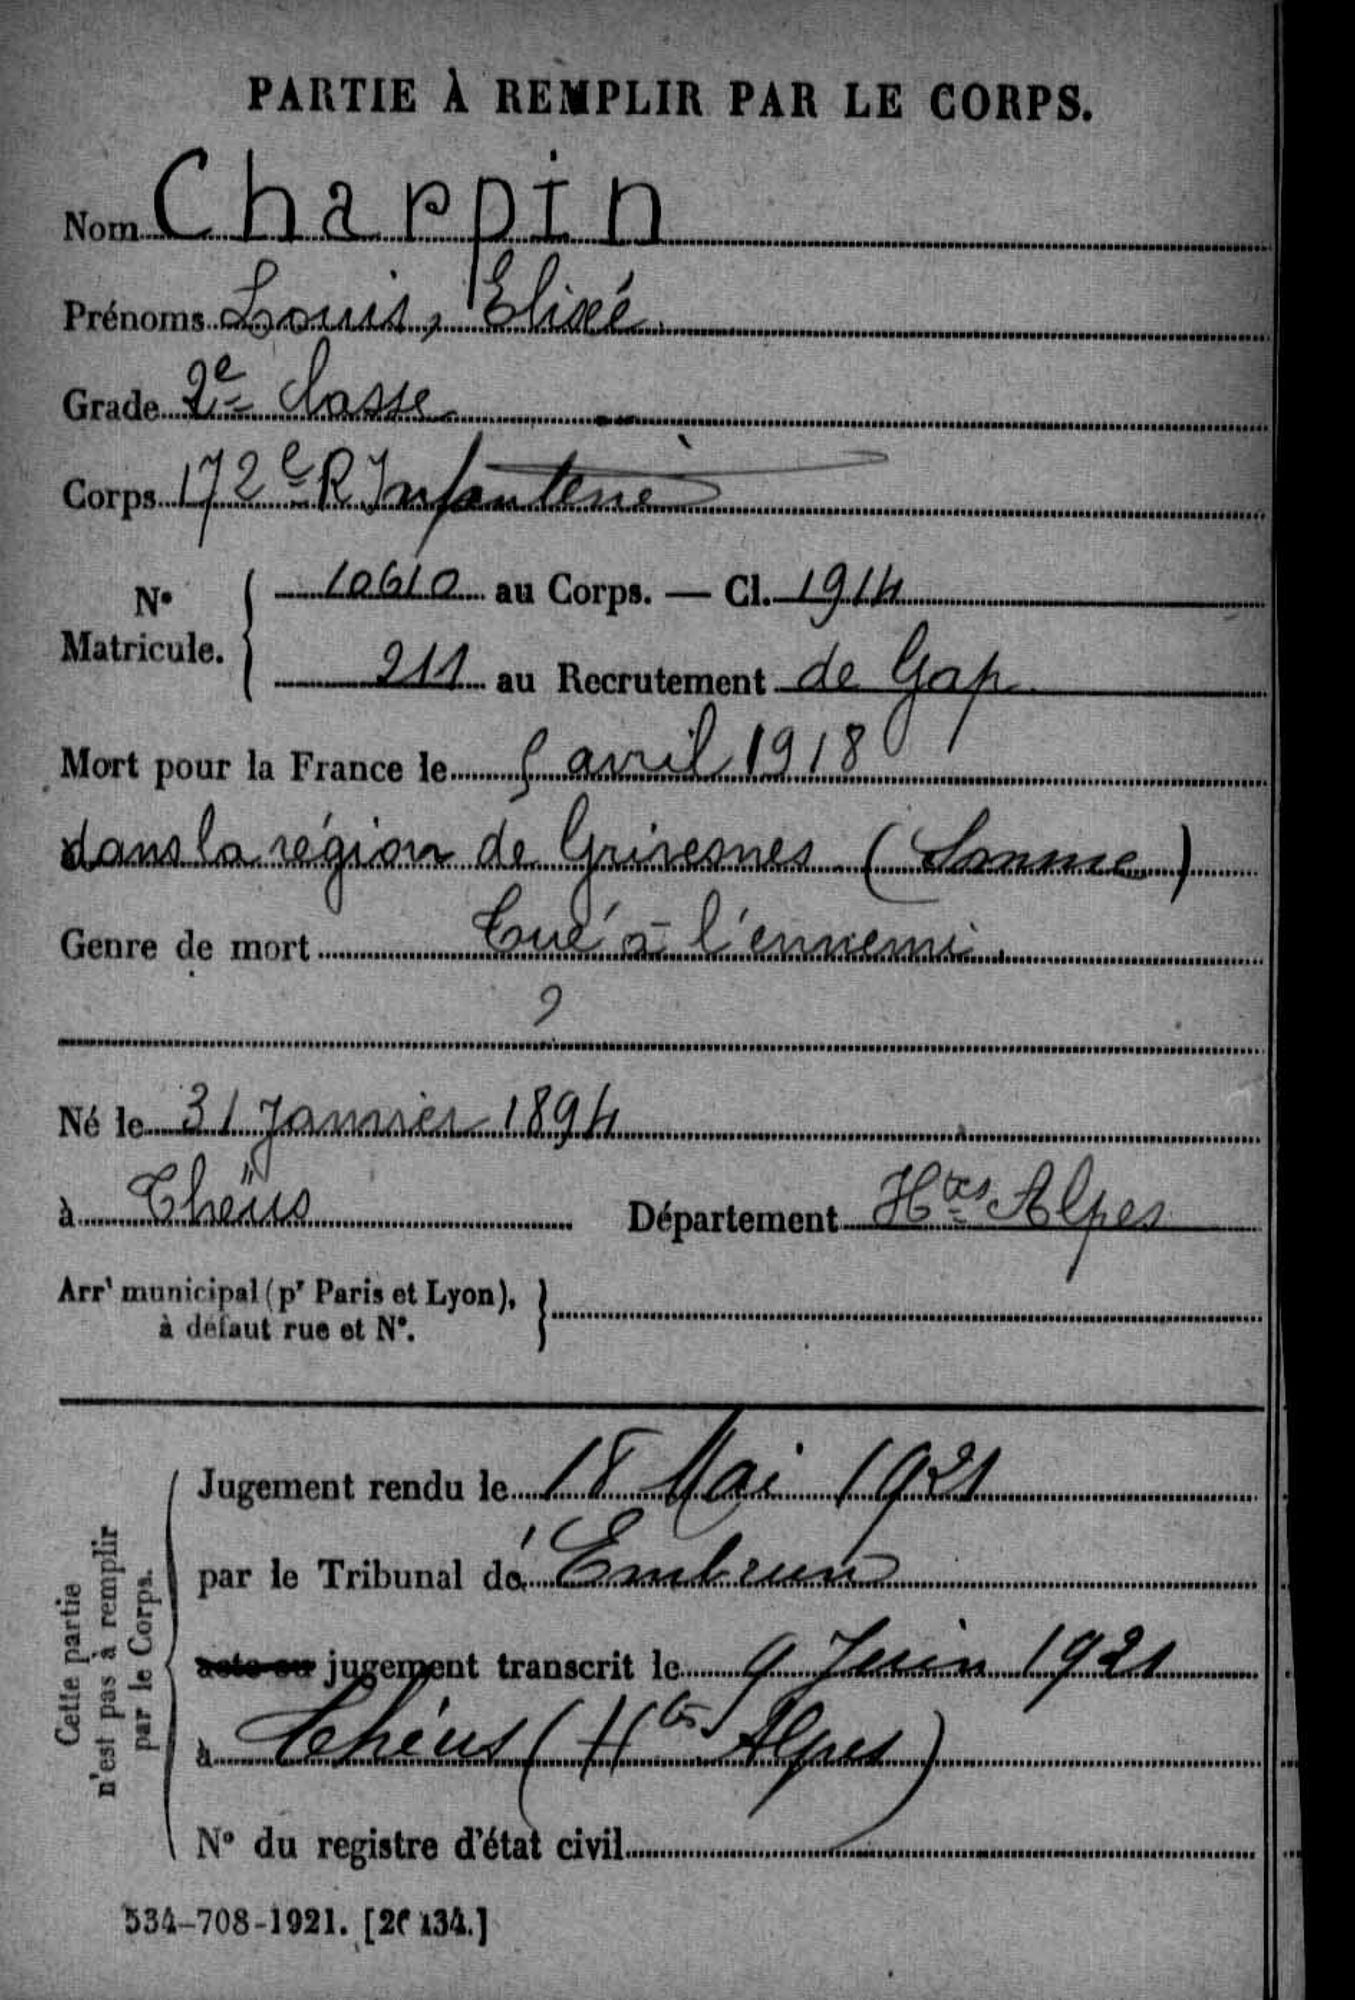 PARTIE À REMPLIR PAR LE CORPS.
Nom Charpin
Prénoms Louis, Elisée
Grade 2e Classe
Corps 172e R Infanterie
N° Matricule. 10610 au Corps. — Cl. 1914
211 au Recrutement de Gap
Mort pour la France le 5 avril 1918
dans la région de Grivesnes (Somme)
Genre de mort Tué à l'ennemi
Né le 31 Janvier 1894
à Théüs Département Htes Alpes
Arrt municipal (pr Paris et Lyon),
à défaut rue et N°.
Cette partie
n'est pas à remplir
par le Corps.
Jugement rendu le 18 Mai 1921
par le Tribunal de Embrun
acte ou jugement transcrit le 9 Juin 1921
à Théus (Htes Alpes)
N° du registre d'état civil
534-708-1921. [26134.]